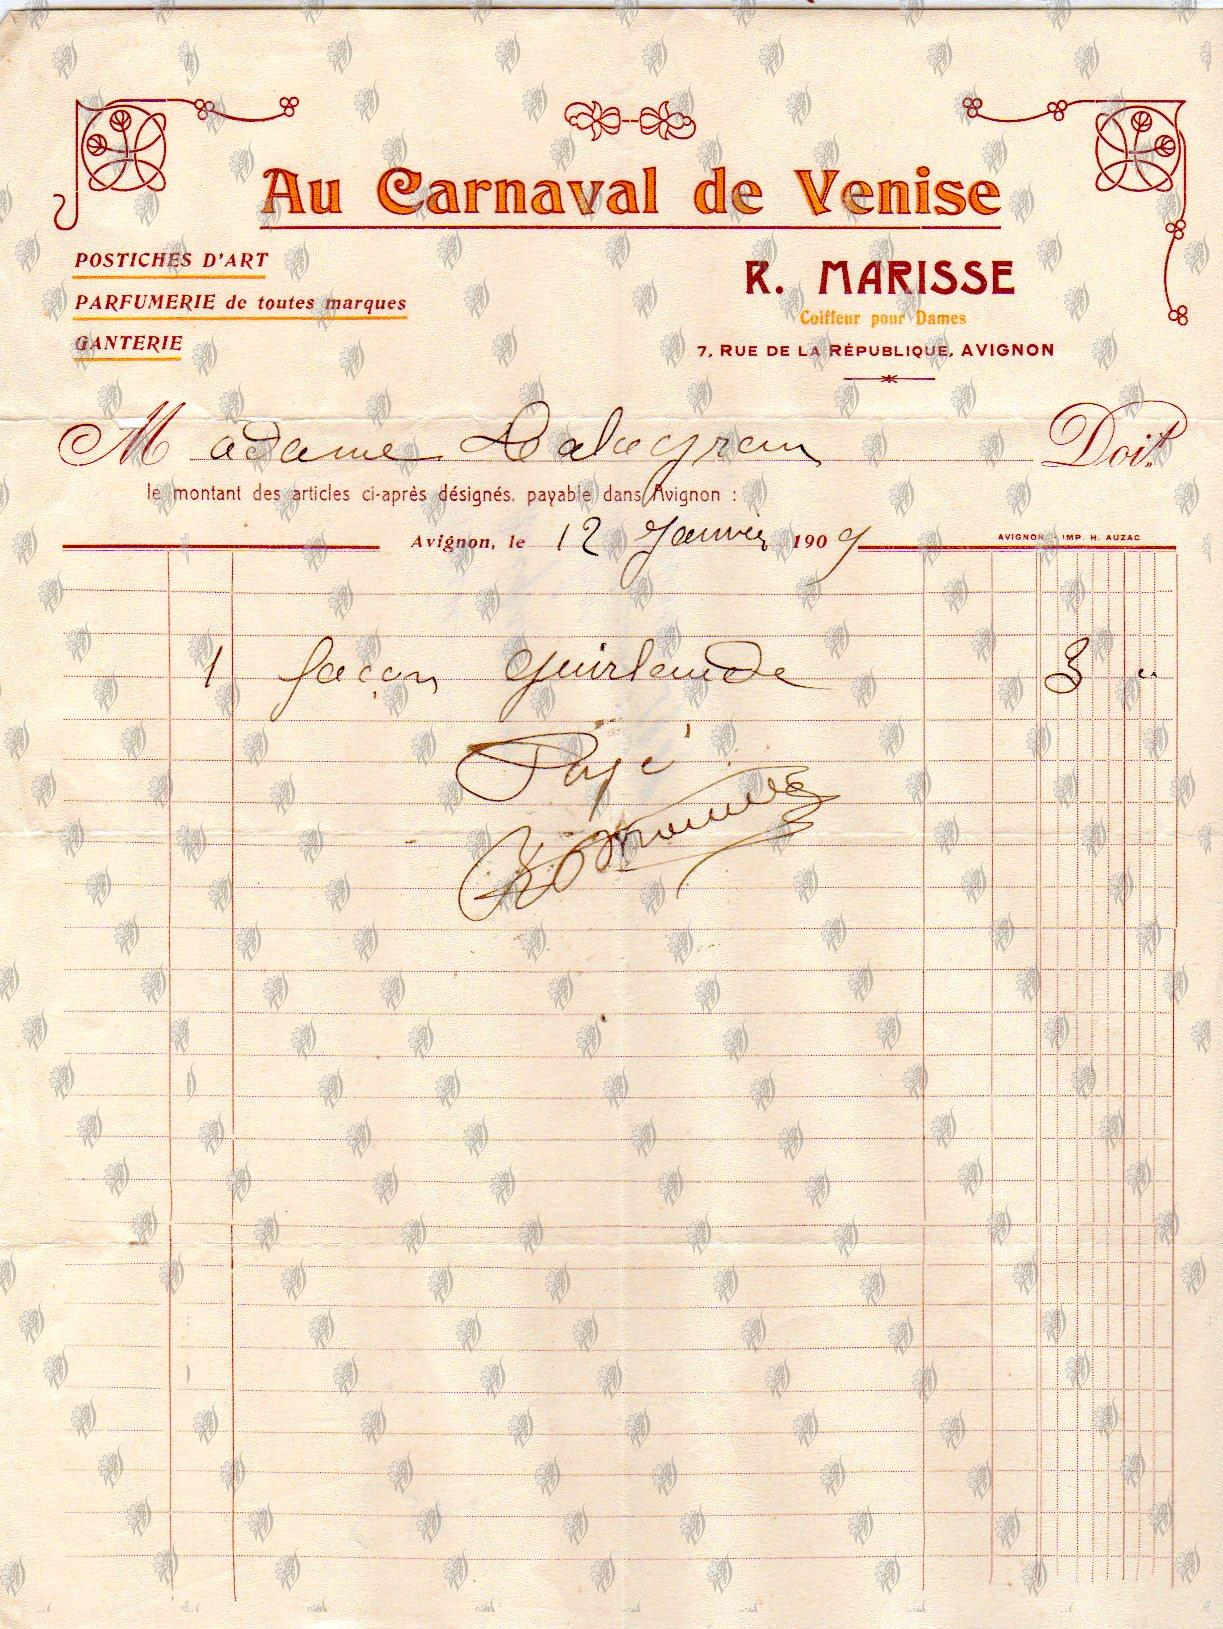 Au Carnaval de Venise
POSTICHES D'ART
PARFUMERIE de toutes marques
GANTERIE
R. MARISSE
Coiffeur pour Dames
7, RUE DE LA RÉPUBLIQUE, AVIGNON
Madame Doit
le montant des articles ci-après désignés, payable dans Avignon :
Avignon, le 12 Janvier 1909
AVIGNON - IMP. H. AUZAC
1 façon guirlande 3 "
Payé